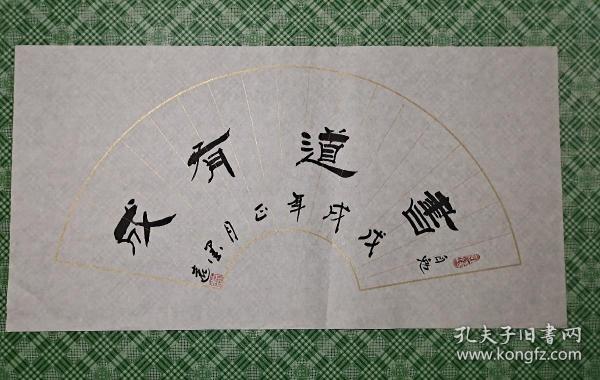 書道有成
自勉
戊戌年正月墨
孔夫子旧书网
www.kongfz.com